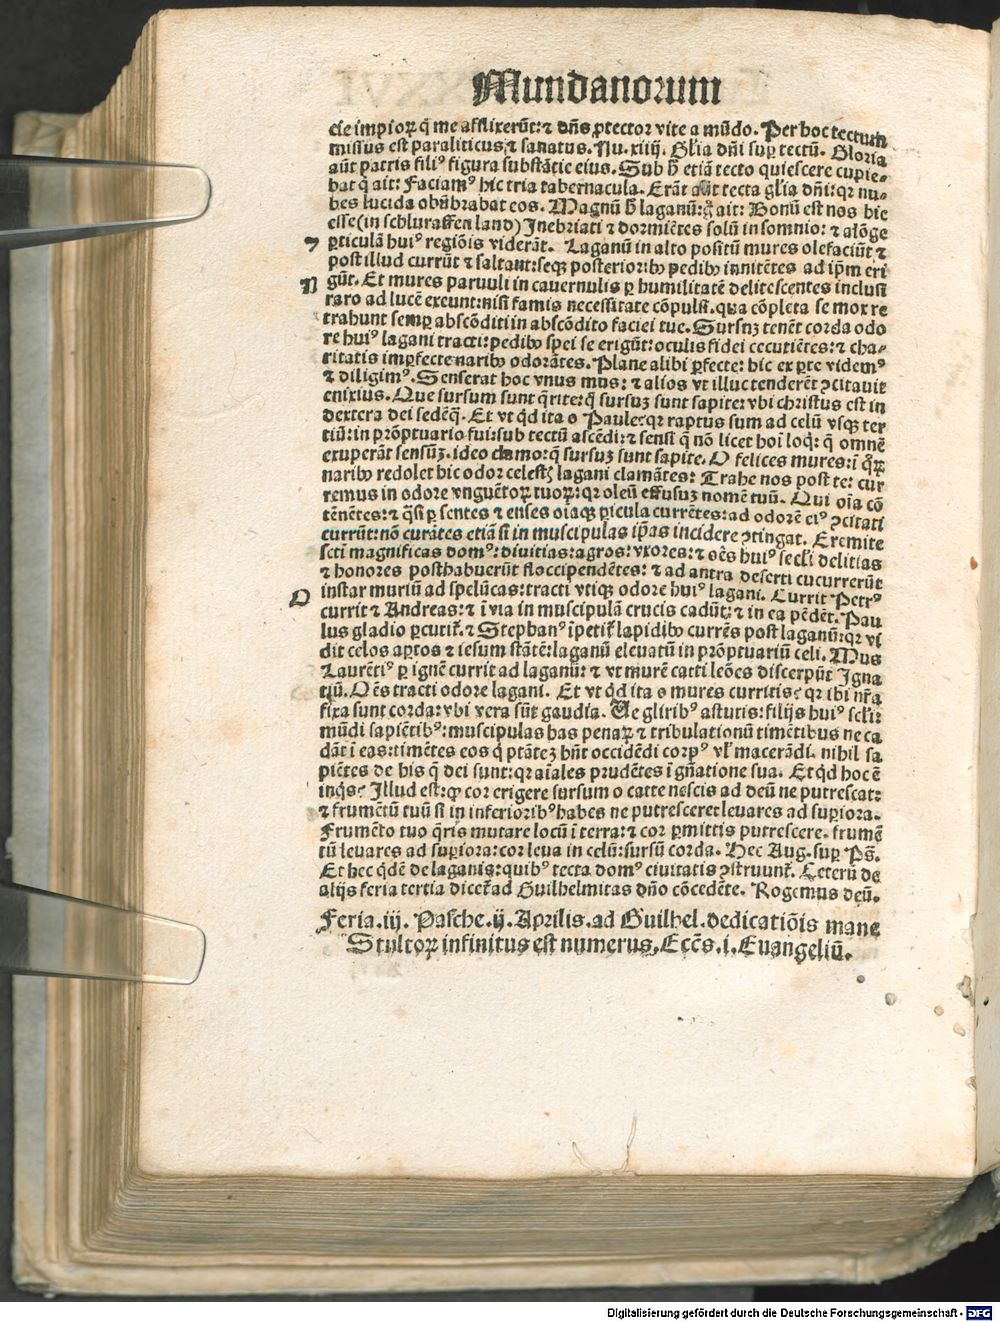 Mundanorum
cie impioꝝ q̄ me afflixerūt: ⁊ dn̄s ꝓtector vite a mūdo. Per hoc tectum
missus est paraliticus, ⁊ sanatus. Nu. xiiij. Gl̄ia dn̄i suꝑ tectū. Gloria
aūt patris filiꝰ figura substātie eius. Sub h̄ etiā tecto quiescere cupie-
bat q̄ ait: Faciamꝰ hic tria tabernacula. Erāt aūt tecta gl̄ia dn̄i: qꝛ nu-
bes lucida obūbrabat eos. Magnū h̄ laganū: ait: Bonū est nos hic
esse (in schluraffen land) Inebriati ⁊ dormiētes solū in somnio: ⁊ alōge
⁊ ꝑticulā huiꝰ regiōis viderāt. Laganū in alto positū mures olefaciūt ⁊
post illud currūt ⁊ saltant: seqꝫ posterioribꝰ pedibꝰ innitētes ad ip̄m eri
N gūt. Et mures paruuli in cauernulis ꝑ humilitatē delitescentes inclusi
raro ad lucē exeunt: nisi famis necessitate cōpulsi. qua cōpleta se mox re
trahunt semꝑ abscōditi in abscōdito faciei tue. Sursuꝫ tenēt corda odo
re huiꝰ lagani tracti: pedibꝰ spei se erigūt: oculis fidei cecutiētes: ⁊ cha-
ritatis imꝑfecte naribꝰ odorātes. Plane alibi ꝑfecte: hic ex ꝑte videmꝰ
⁊ diligimꝰ. Senserat hoc vnus mus: ⁊ alios vt illuc tenderēt ꝯcitauit
enixius. Que sursum sunt q̄rite: q̄ sursuꝫ sunt sapite: vbi christus est in
dextera dei sedēs. Et vt qd ita o Paule: qꝛ raptus sum ad celū vsqꝫ ter
tiū: in prōptuario fui: sub tectū ascēdi: ⁊ sensi q̄ nō licet hoī loq̄: q̄ omnē
exuperāt sensūꝫ. ideo clamo: q̄ sursuꝫ sunt sapite. O felices mures: ī q̄ꝝ
naribꝰ redolet hic odor celestꝭ lagani clamātes: Trahe nos post te: cur
remus in odore vnguētoꝝ tuoꝝ: qꝛ oleū effusuꝫ nomē tuū. Qui oīa cō
tēnētes: ⁊ q̄si ꝑ sentes ⁊ enses oīaqꝫ ꝑicula currētes: ad odorē eiꝰ ꝯcitati
currūt: nō curātes etiā si in muscipulas ip̄as incidere ꝯtingat. Eremite
sct̄i magnificas domꝰ: diuitias: agros: vxores: ⁊ oēs huiꝰ sec̄li delitias
⁊ honores posthabuerūt floccipendētes: ⁊ ad antra deserti cucurrerūt
O instar muriū ad spelūcas: tracti vtiqꝫ odore huiꝰ lagani. Currit Petrꝰ
currit ⁊ Andreas: ⁊ ī via in muscipulā crucis cadūt: ⁊ in ea pēdēt. Pau
lus gladio ꝑcutit̄. ⁊ Stephanꝰ īpetit̄ lapidibꝰ currēs post laganū: qꝛ vi
dit celos aꝑtos ⁊ iesum stātē: laganū eleuatū in prōptuariū celi. Mus
Laurētiꝰ ꝑ ignē currit ad laganū: ⁊ vt murē catti leōes discerpūt Igna
tiū. Oēs tracti odore lagani. Et vt qd ita o mures curritis? qꝛ ibi nr̄a
fixa sunt corda: vbi vera sūt gaudia. Ve gliribꝰ astutis: filijs huiꝰ scl̄i:
mūdi sapiētibꝰ: muscipulas has penaꝝ ⁊ tribulationū timētibus ne ca
dāt ī eas: timētes eos q̄ ptātez hn̄t occidēdi corpꝰ vl̓ macerādi. nihil sa
piētes de his q̄ dei sunt: qꝛ aīales prudētes ī gn̄atione sua. Et qd hoc ē
inqs? Illud est: ꝙ cor erigere sursum o catte nescis ad deū ne putrescat:
⁊ frumētū tuū si in inferioribꝰ habes ne putresceret leuares ad suꝑiora.
Frumēto tuo q̄ris mutare locū ī terra: ⁊ cor ꝑmittis putrescere. frumē
tū leuares ad suꝑiora: cor leua in celū: sursū corda. Hec Aug. suꝑ Ps̄.
Et hec qdē de laganis: quibꝰ tecta domꝰ ciuitatis ꝯstruunt̄. Ceterū de
alijs feria tertia dicet̄ ad Guilhelmitas dn̄o cōcedēte. Rogemus deū.
Feria. iij. Pasche. ij. Aprilis. ad Guilhel. dedicatiōis mane
Stultoꝝ infinitus est numerus. Ecc̄s. i. Euangeliū.
Digitalisierung gefördert durch die Deutsche Forschungsgemeinschaft - DFG